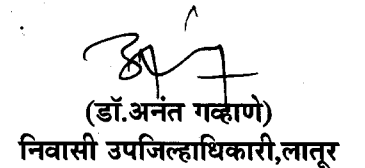 (डॉ.अनंत गव्हाणे)
निवासी उपजिल्हाधिकारी,लातूर